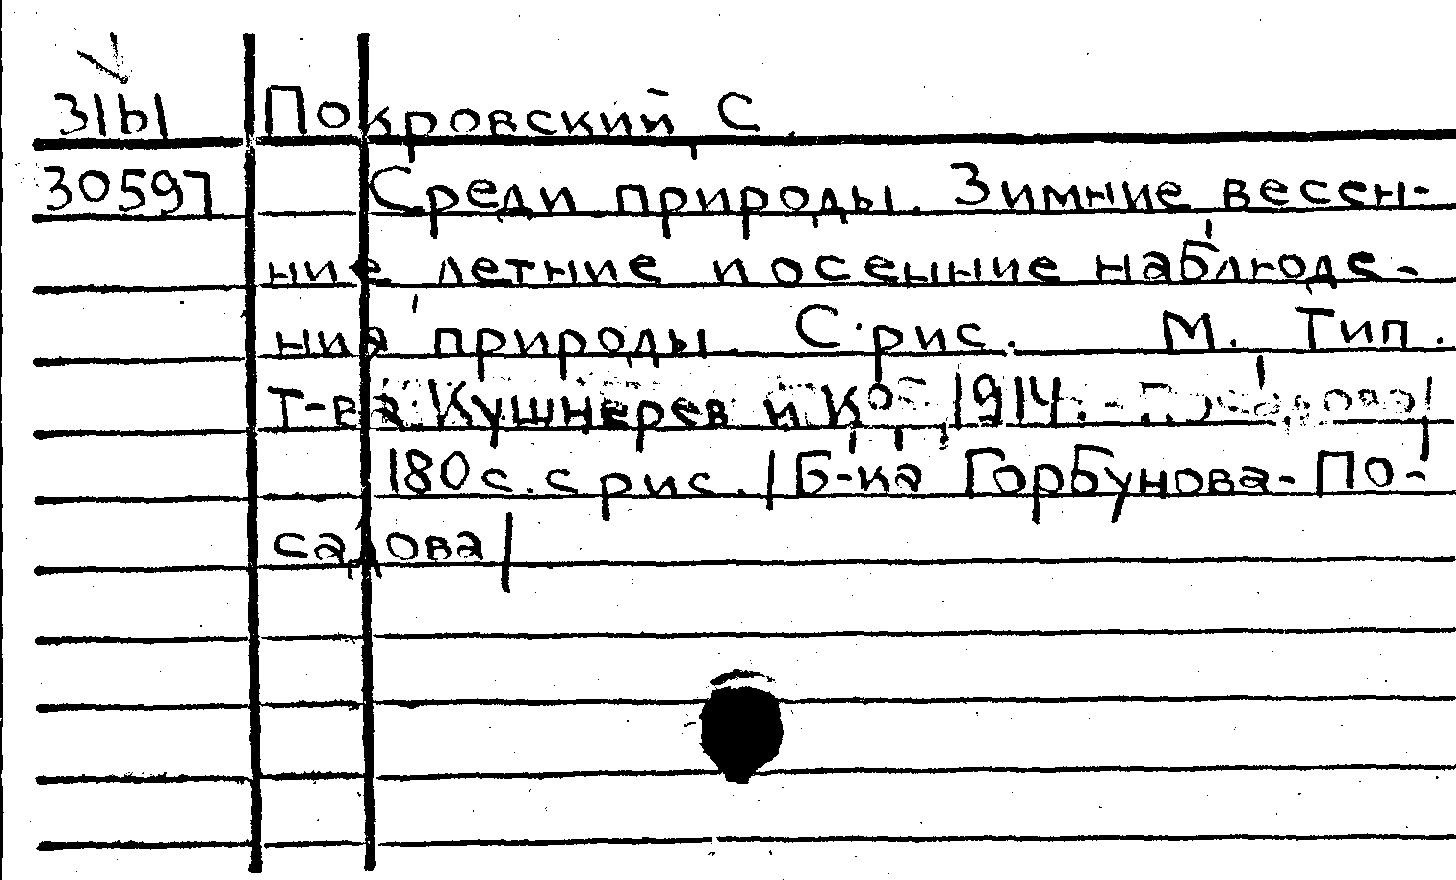 31Ы Покровский С.
30597 Среди природы. Зимние весен-
ние летние и осенние наблюде-
ния природы. С рис. М. Тип.
Т-ва Кушнерев и Ко 1914.
180 с. с рис. /Б-ка Горбунова-По-
садова/